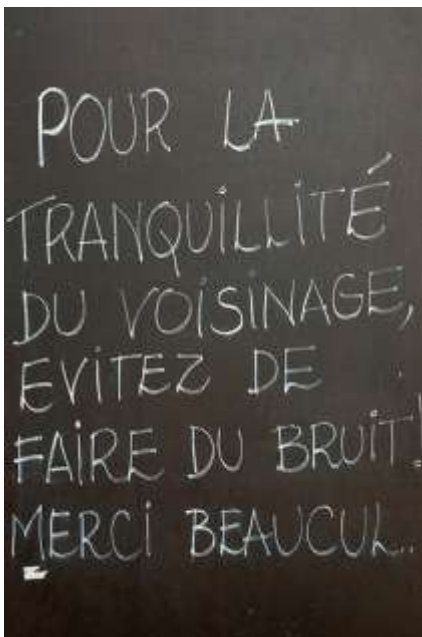 POUR LA
TRANQUiLLiTÉ
DU VOiSiNAGE,
EViTEZ DE
FAiRE DU BRUiT!
MERCi BEAUCUL..